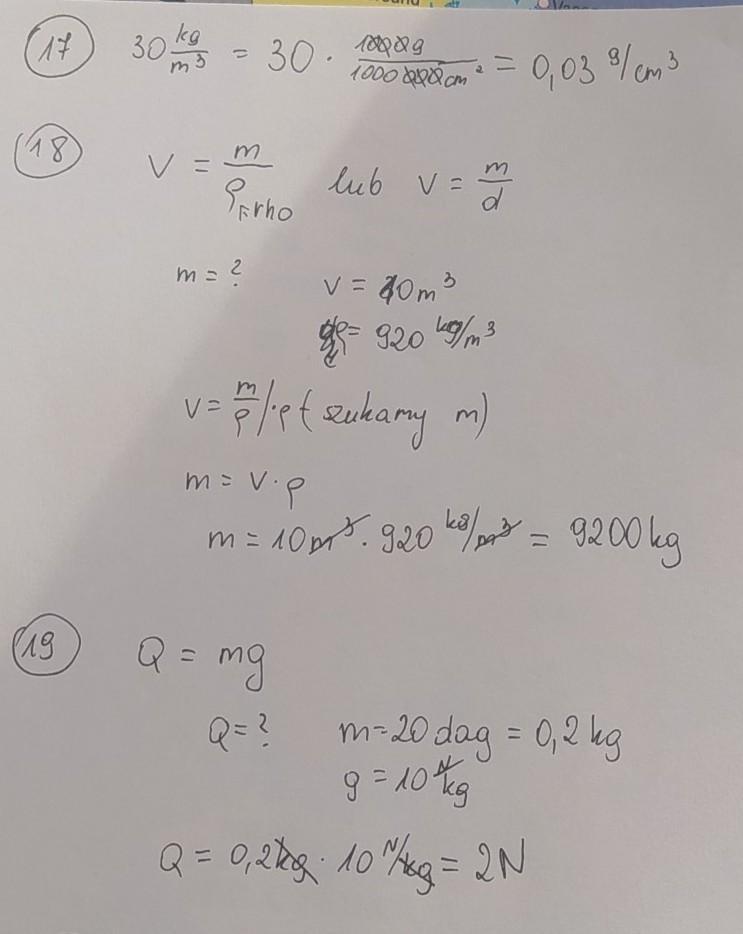 17 30 kg/m³ = 30 · 1000g/1000000cm² = 0,03 g/cm³
18 V = m/ρ ←rho lub V = m/d
m = ? V = 10m³
ρ = 920 kg/m³
V = m/ρ /·ρ (szukamy m)
m = V · ρ
m = 10m³ · 920 kg/m³ = 9200kg
19 Q = mg
Q = ? m = 20 dag = 0,2 kg
g = 10 N/kg
Q = 0,2kg · 10 N/kg = 2N